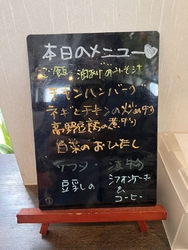 本日のメニュー♡
ご飯 油あげのおみそ汁
チキンハンバーグ
ネギとチキンの炒め物
高野豆腐の煮物
白菜のおひたし
サラダ 漬物
豆乳の シフォンケーキ
&
コーヒー